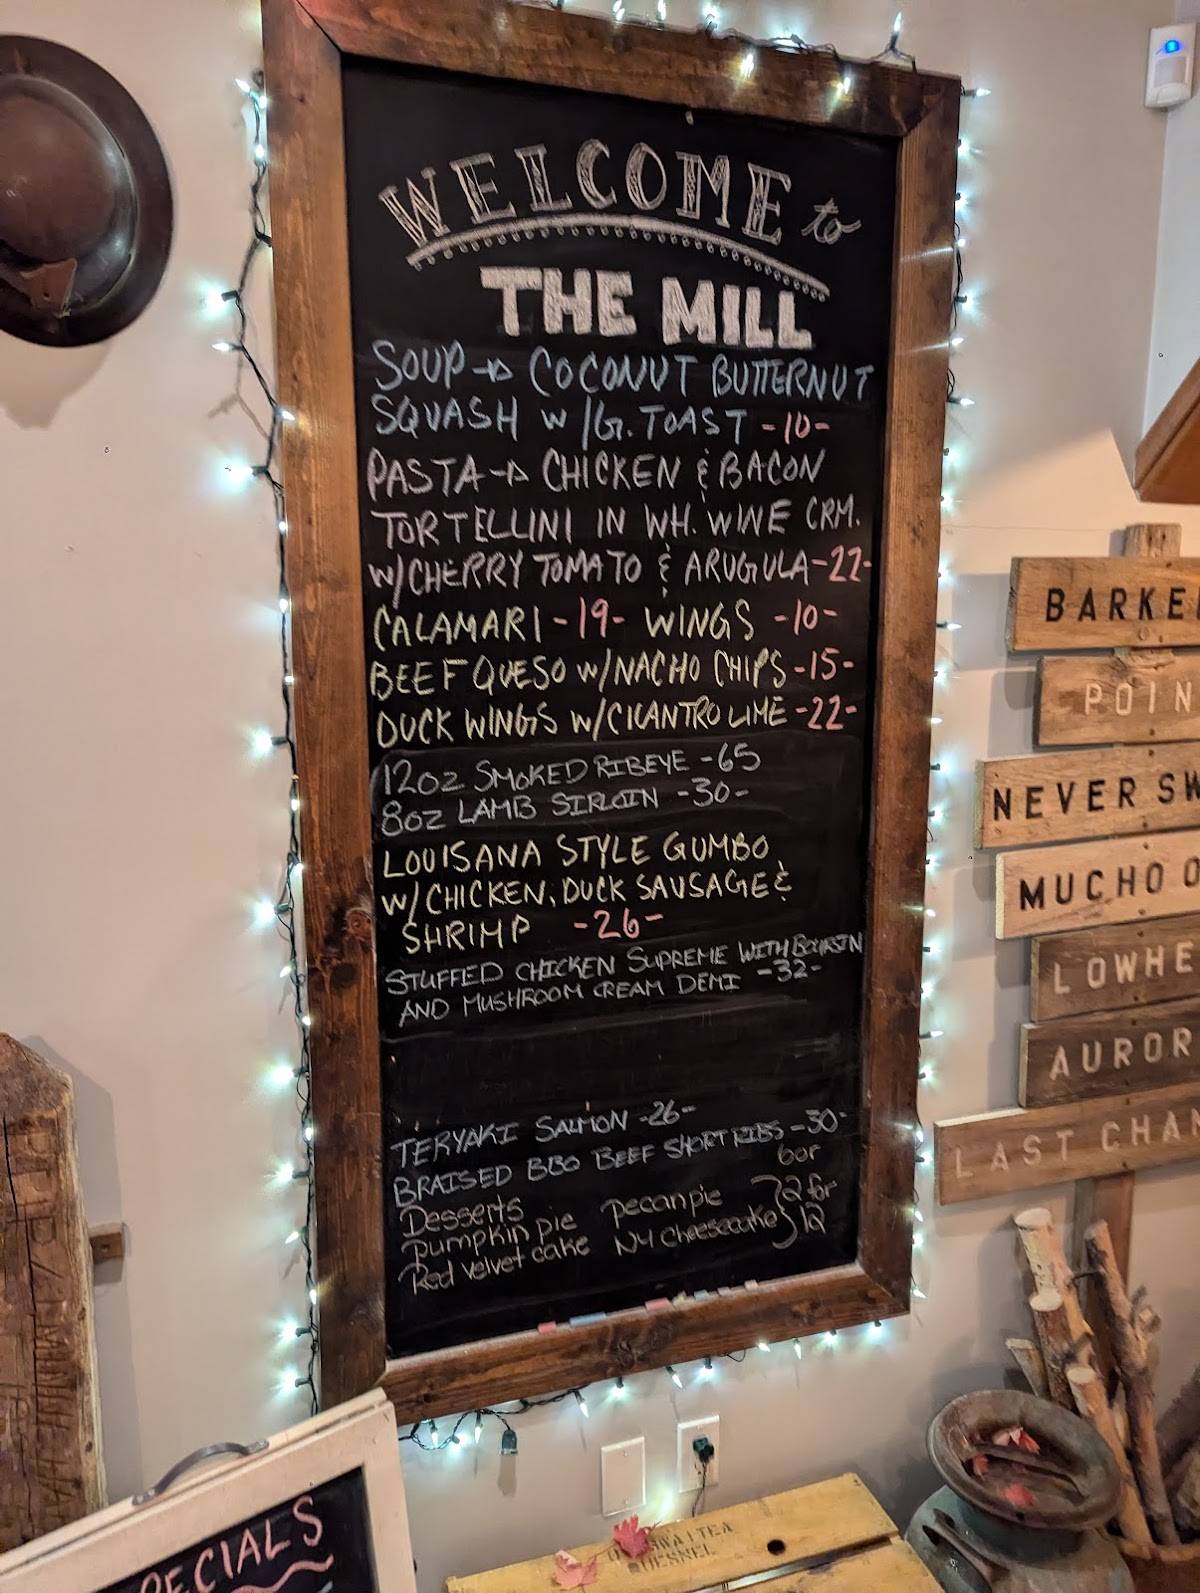 WELCOME to
THE MILL
SOUP → COCONUT BUTTERNUT
SQUASH W/G. TOAST -10-
PASTA → CHICKEN & BACON
TORTELLINI IN WH. WINE CRM.
W/CHERRY TOMATO & ARUGULA -22-
CALAMARI -19- WINGS -10-
BEEF QUESO W/NACHO CHIPS -15-
DUCK WINGS W/CILANTRO LIME -22-
12oz SMOKED RIBEYE -65
8oz LAMB SIRLOIN -30-
LOUISANA STYLE GUMBO
W/CHICKEN, DUCK SAUSAGE &
SHRIMP -26-
STUFFED CHICKEN SUPREME WITH BOURSIN
AND MUSHROOM CREAM DEMI -32-
TERYAKI SALMON -26-
BRAISED BBQ BEEF SHORT RIBS -30-
Desserts 6or
pumpkin pie pecan pie 2 for
Red velvet cake NY Cheesecake 12
BARKE
POIN
NEVER SW
MUCHO O
LOWHE
AUROR
LAST CHAN
PECIALS